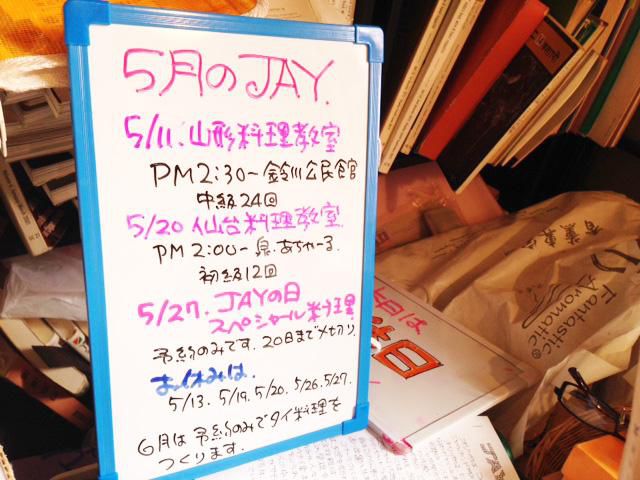 5月のJAY.
5/11. 山形料理教室
PM2:30~ 鈴川公民館
中級24回
5/20 仙台料理教室.
PM 2:00~ 泉.あちゃーる.
初級12回
5/27. JAYの日
スペシャール料理
予約のみです. 20日まで〆切り.
お休みは.
5/13. 5/19. 5/20. 5/26. 5/27.
6月は 予約のみでタイ料理を
つくります.
今日は
休日
Fantastic®
Aromatic